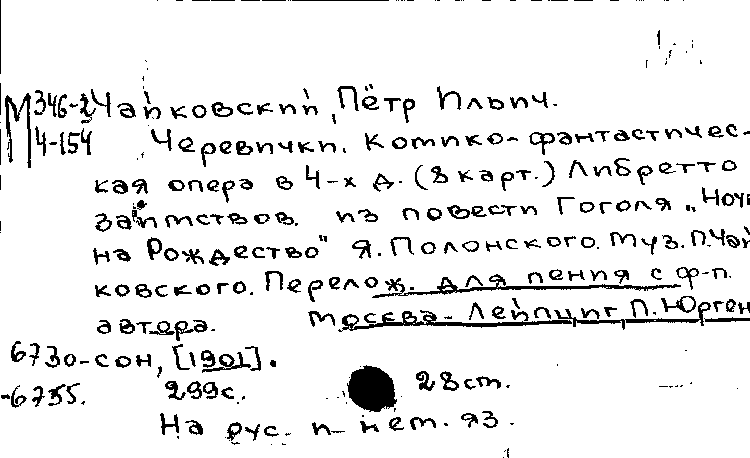 М 346-2 Чайковский, Пётр Ильич.
4-154 Черевички. Комико-фантастичес-
кая опера в 4-х д. (8 карт.) Либретто
заимствов. из повести Гоголя „Ночь
на Рождество" Я. Полонского. Муз. П. Чай-
ковского. Перелож. для пения с ф-п.
автора. Москва - Лейпциг, П. Юрген-
6730-сон, [1901].
-6755. 299с. 28 ст.
На рус. и нем. яз.